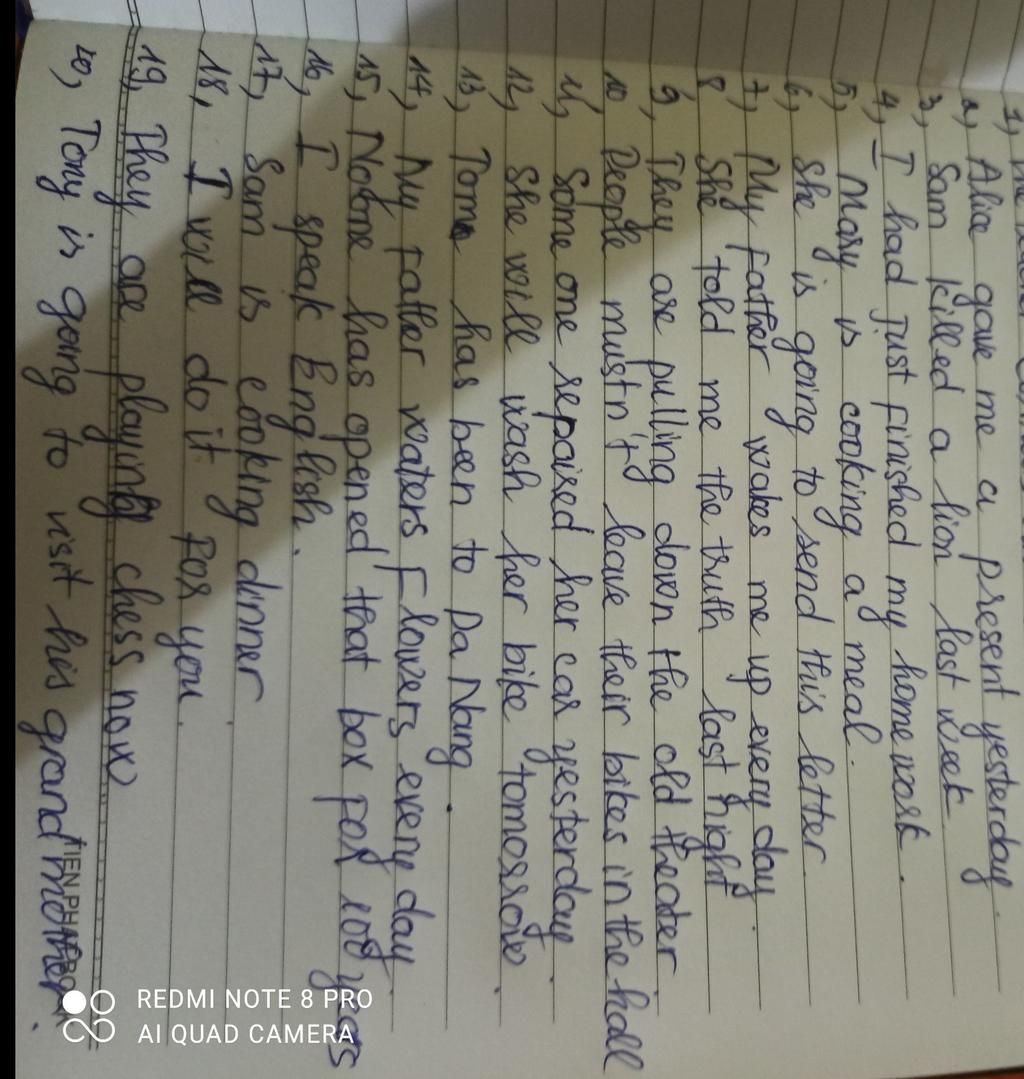 1,
2, Alice gave me a present yesterday.
3, Sam killed a lion last week
4, I had just finished my homework.
5, Mary is cooking a meal.
6, She is going to send this letter
7, My father wakes me up every day.
8 She told me the truth last night
9, They are pulling down the old theater.
10 People mustn't leave their bikes in the hall
11, Some one repaired her car yesterday.
12, She will wash her bike tomorrow.
13, Tom has been to Da Nang.
14, My father waters flowers every day.
15, No one has opened that box for 100 years
16, I speak English.
17, Sam is cooking dinner
18, I will do it for you.
19, They are playing chess now
20, Tony is going to visit his grandmother.
REDMI NOTE 8 PRO
AI QUAD CAMERA